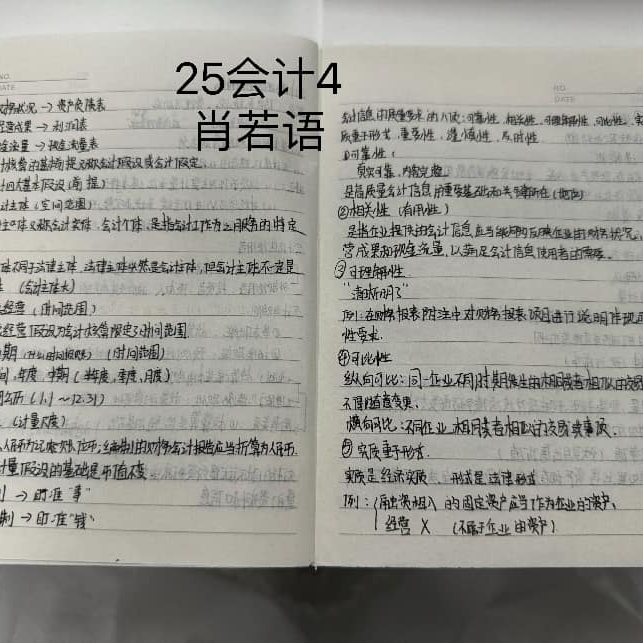 25会计4
肖若语
NO.
DATE
状况 → 资产负债表
经营成果 → 利润表
流量 → 现金流量表
计核算的基本前提又称会计假设或会计假定
计四大基本假设(前提)
计主体(空间范围)
主体又称会计实体、会计个体,是指会计工作为之服务的特定
体不同于法律主体,法律主体必然是会计主体,但会计主体不一定是
(会计主体大)
经营(时间范围)
经营假设为会计核算限定了时间范围
期 (时间范围)
年度、中期(半年度、季度、月度)
公历(1.1~12.31)
(计量尺度)
人民币为记账本位币,编制的财务会计报告应当折算为人民币.
量假设的基础是币值稳
→ 盯准“事”
制 → 盯准“钱”
NO.
DATE
会计信息的质量要求的八项:可靠性、相关性、可理解性、可比性、实
质重于形式、重要性、谨慎性、及时性
①可靠性:
真实可靠、内容完整
是高质量会计信息的重要基础和关键所在
②相关性(有用性)
是指企业提供的会计信息应当能够反映企业的财务状况、
营成果和现金流量,以满足会计信息使用者的需要。
③可理解性
“清晰明了”
例:在财务报表附注中对财务报表项目进行说明体现
性要求.
④可比性
纵向可比:同一企业不同时期发生的相同或者相似的交易
不得随意变更.
横向可比:不同企业相同或者相似的交易或事项.
⑤实质重于形式.
实质是经济实质 形式是法律形式
例:融资租入的固定资产应当作为企业的资产、
经营 X (不属于企业的资产)